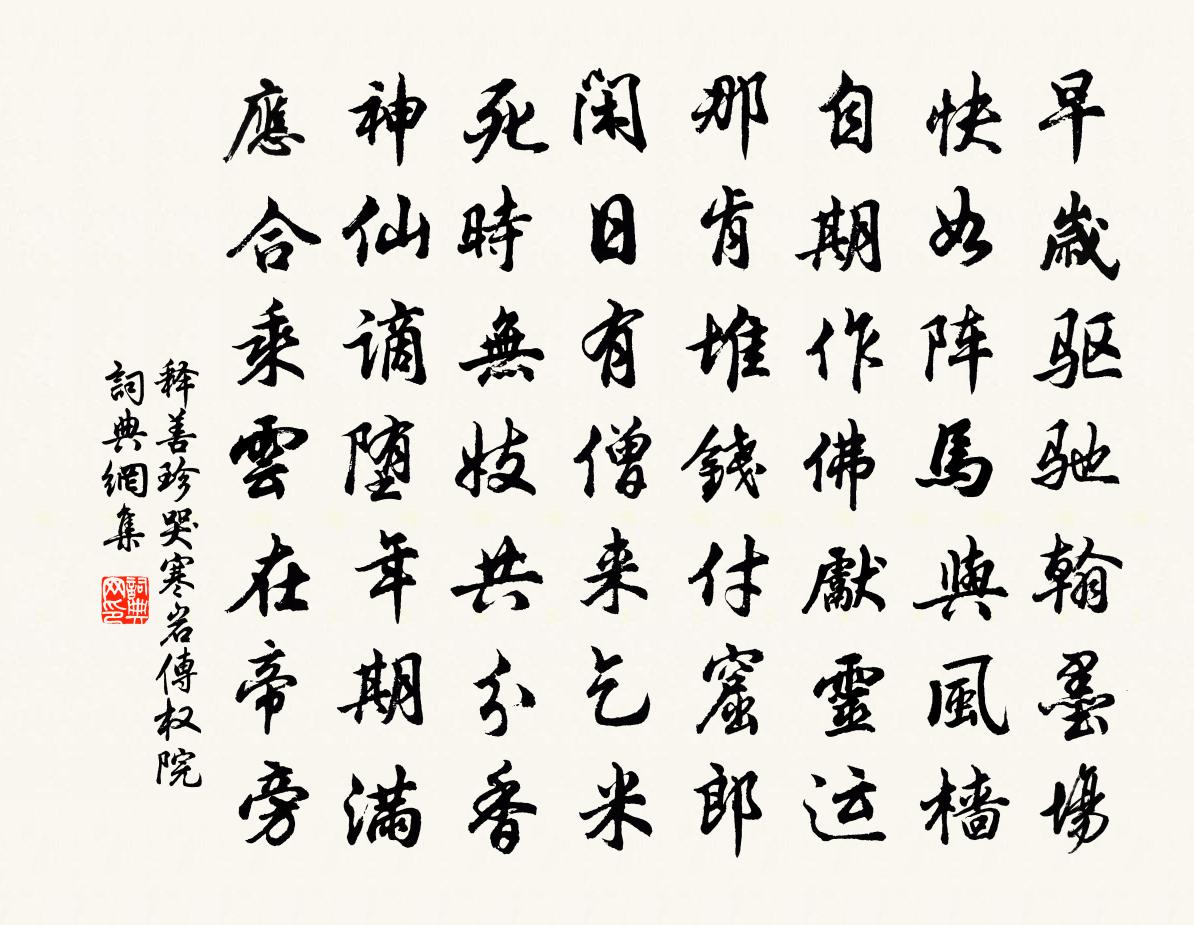 早歲驱驰翰墨場
快如阵馬與風檣
自期作佛獻靈运
那肯堆錢付窟郎
闲日有僧来乞米
死時無妓共分香
神仙谪堕年期滿
應合乘雲在帝旁
释善珍哭寒岩傅权院
詞典網集
詞典网印